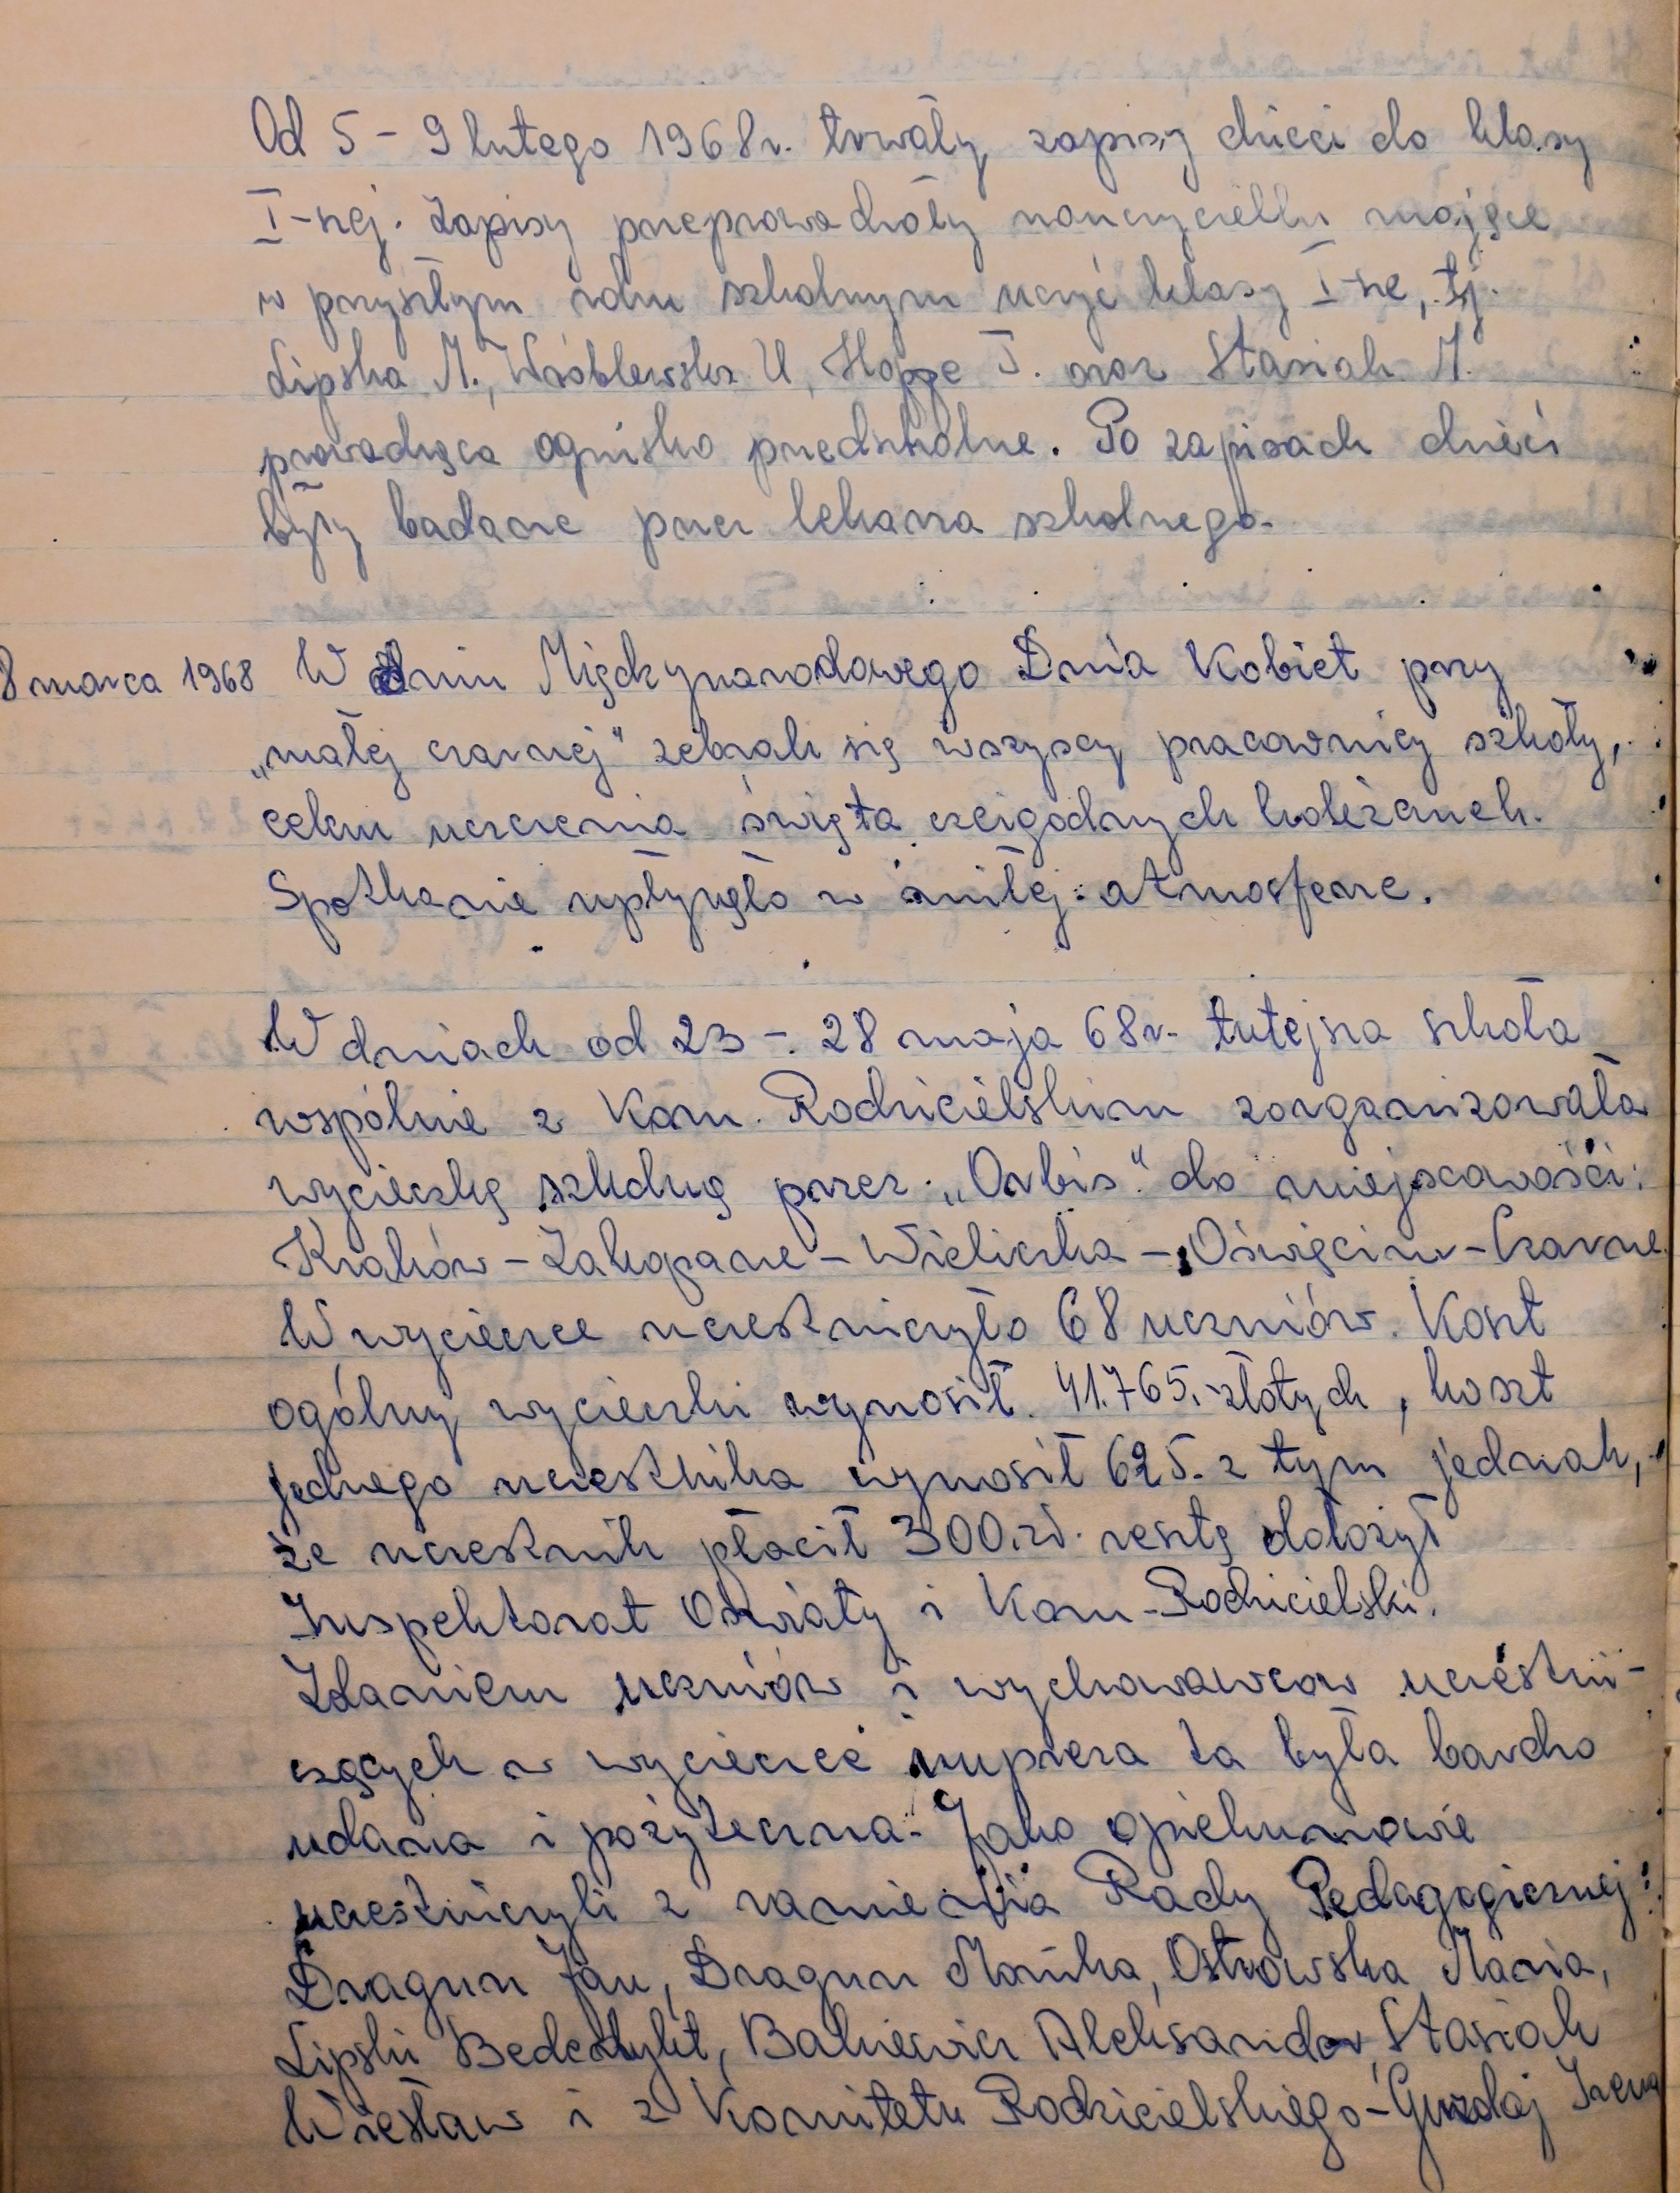 Od 5 – 9 lutego 1968 r. trwały zapisy dzieci do klasy
I-szej. Zapisy przeprowadzały nauczycielki mające
w przyszłym roku szkolnym uczyć klasy I-sze, tj.
Lipska M., Wróblewska U, Hoppe T. oraz Stasiak M.
prowadząca ognisko przedszkolne. Po zapisach dzieci
były badane przez lekarza szkolnego.
8 marca 1968 W dniu Międzynarodowego Dnia Kobiet przy
„małej czarnej" zebrali się wszyscy pracownicy szkoły,
celem uczczenia święta czcigodnych koleżanek.
Spotkanie upłynęło w miłej atmosferze.
W dniach od 23 – 28 maja 68 r. tutejsza szkoła
wspólnie z Kom. Rodzicielskim zorganizowała
wycieczkę szkolną przez „Orbis" do miejscowości:
Kraków – Zakopane – Wieliczka – Oświęcim – Czarne.
W wycieczce uczestniczyło 68 uczniów. Koszt
ogólny wycieczki wynosił 41.765,- złotych, koszt
jednego uczestnika wynosił 625.- z tym jednak,
że uczestnik płacił 300.- zł. resztę dołożył
Inspektorat Oświaty i Kom. Rodzicielski.
Zdaniem uczniów i wychowawców uczestni-
czących w wycieczce impreza ta była bardzo
udana i pożyteczna. Jako opiekunowie
uczestniczyli z ramienia Rady Pedagogicznej:
Dragun Jan, Dragun Monika, Ostrowska Maria,
Lipski Benedykt, Bakiewicz Aleksander, Stasiak
Wiesław i z Komitetu Rodzicielskiego – Irena